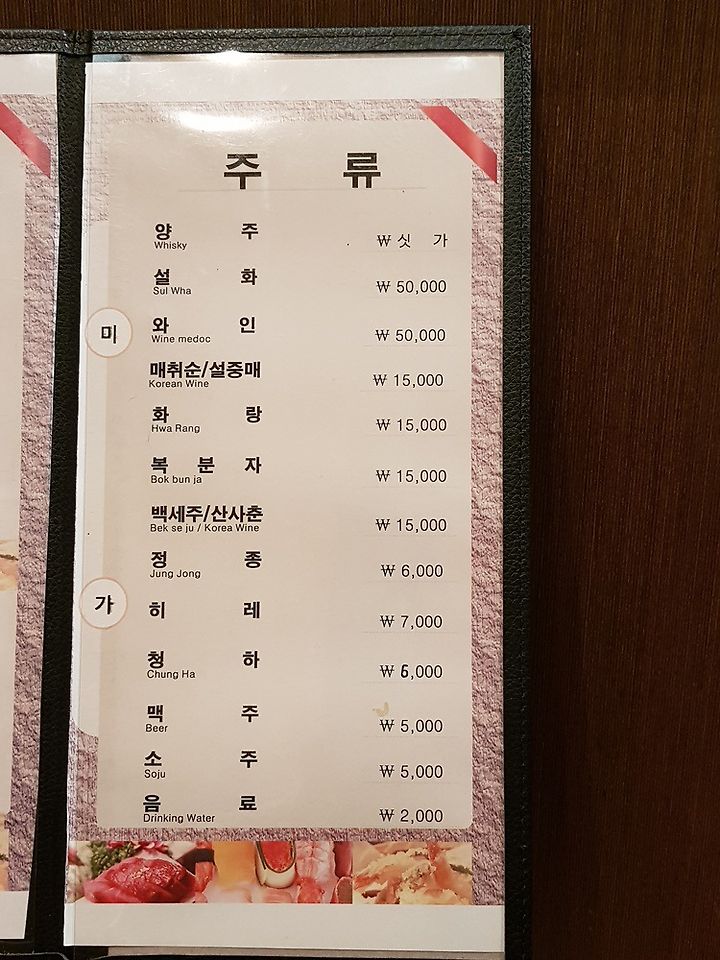 주 류
양 주 ₩ 싯 가
Whisky
설 화 ₩ 50,000
Sul Wha
미
와 인 ₩ 50,000
Wine medoc
매취순/설중매 ₩ 15,000
Korean Wine
화 랑 ₩ 15,000
Hwa Rang
복 분 자 ₩ 15,000
Bok bun ja
백세주/산사춘 ₩ 15,000
Bek se ju / Korea Wine
정 종 ₩ 6,000
Jung Jong
가
히 레 ₩ 7,000
청 하 ₩ 6,000
Chung Ha
맥 주 ₩ 5,000
Beer
소 주 ₩ 5,000
Soju
음 료 ₩ 2,000
Drinking Water